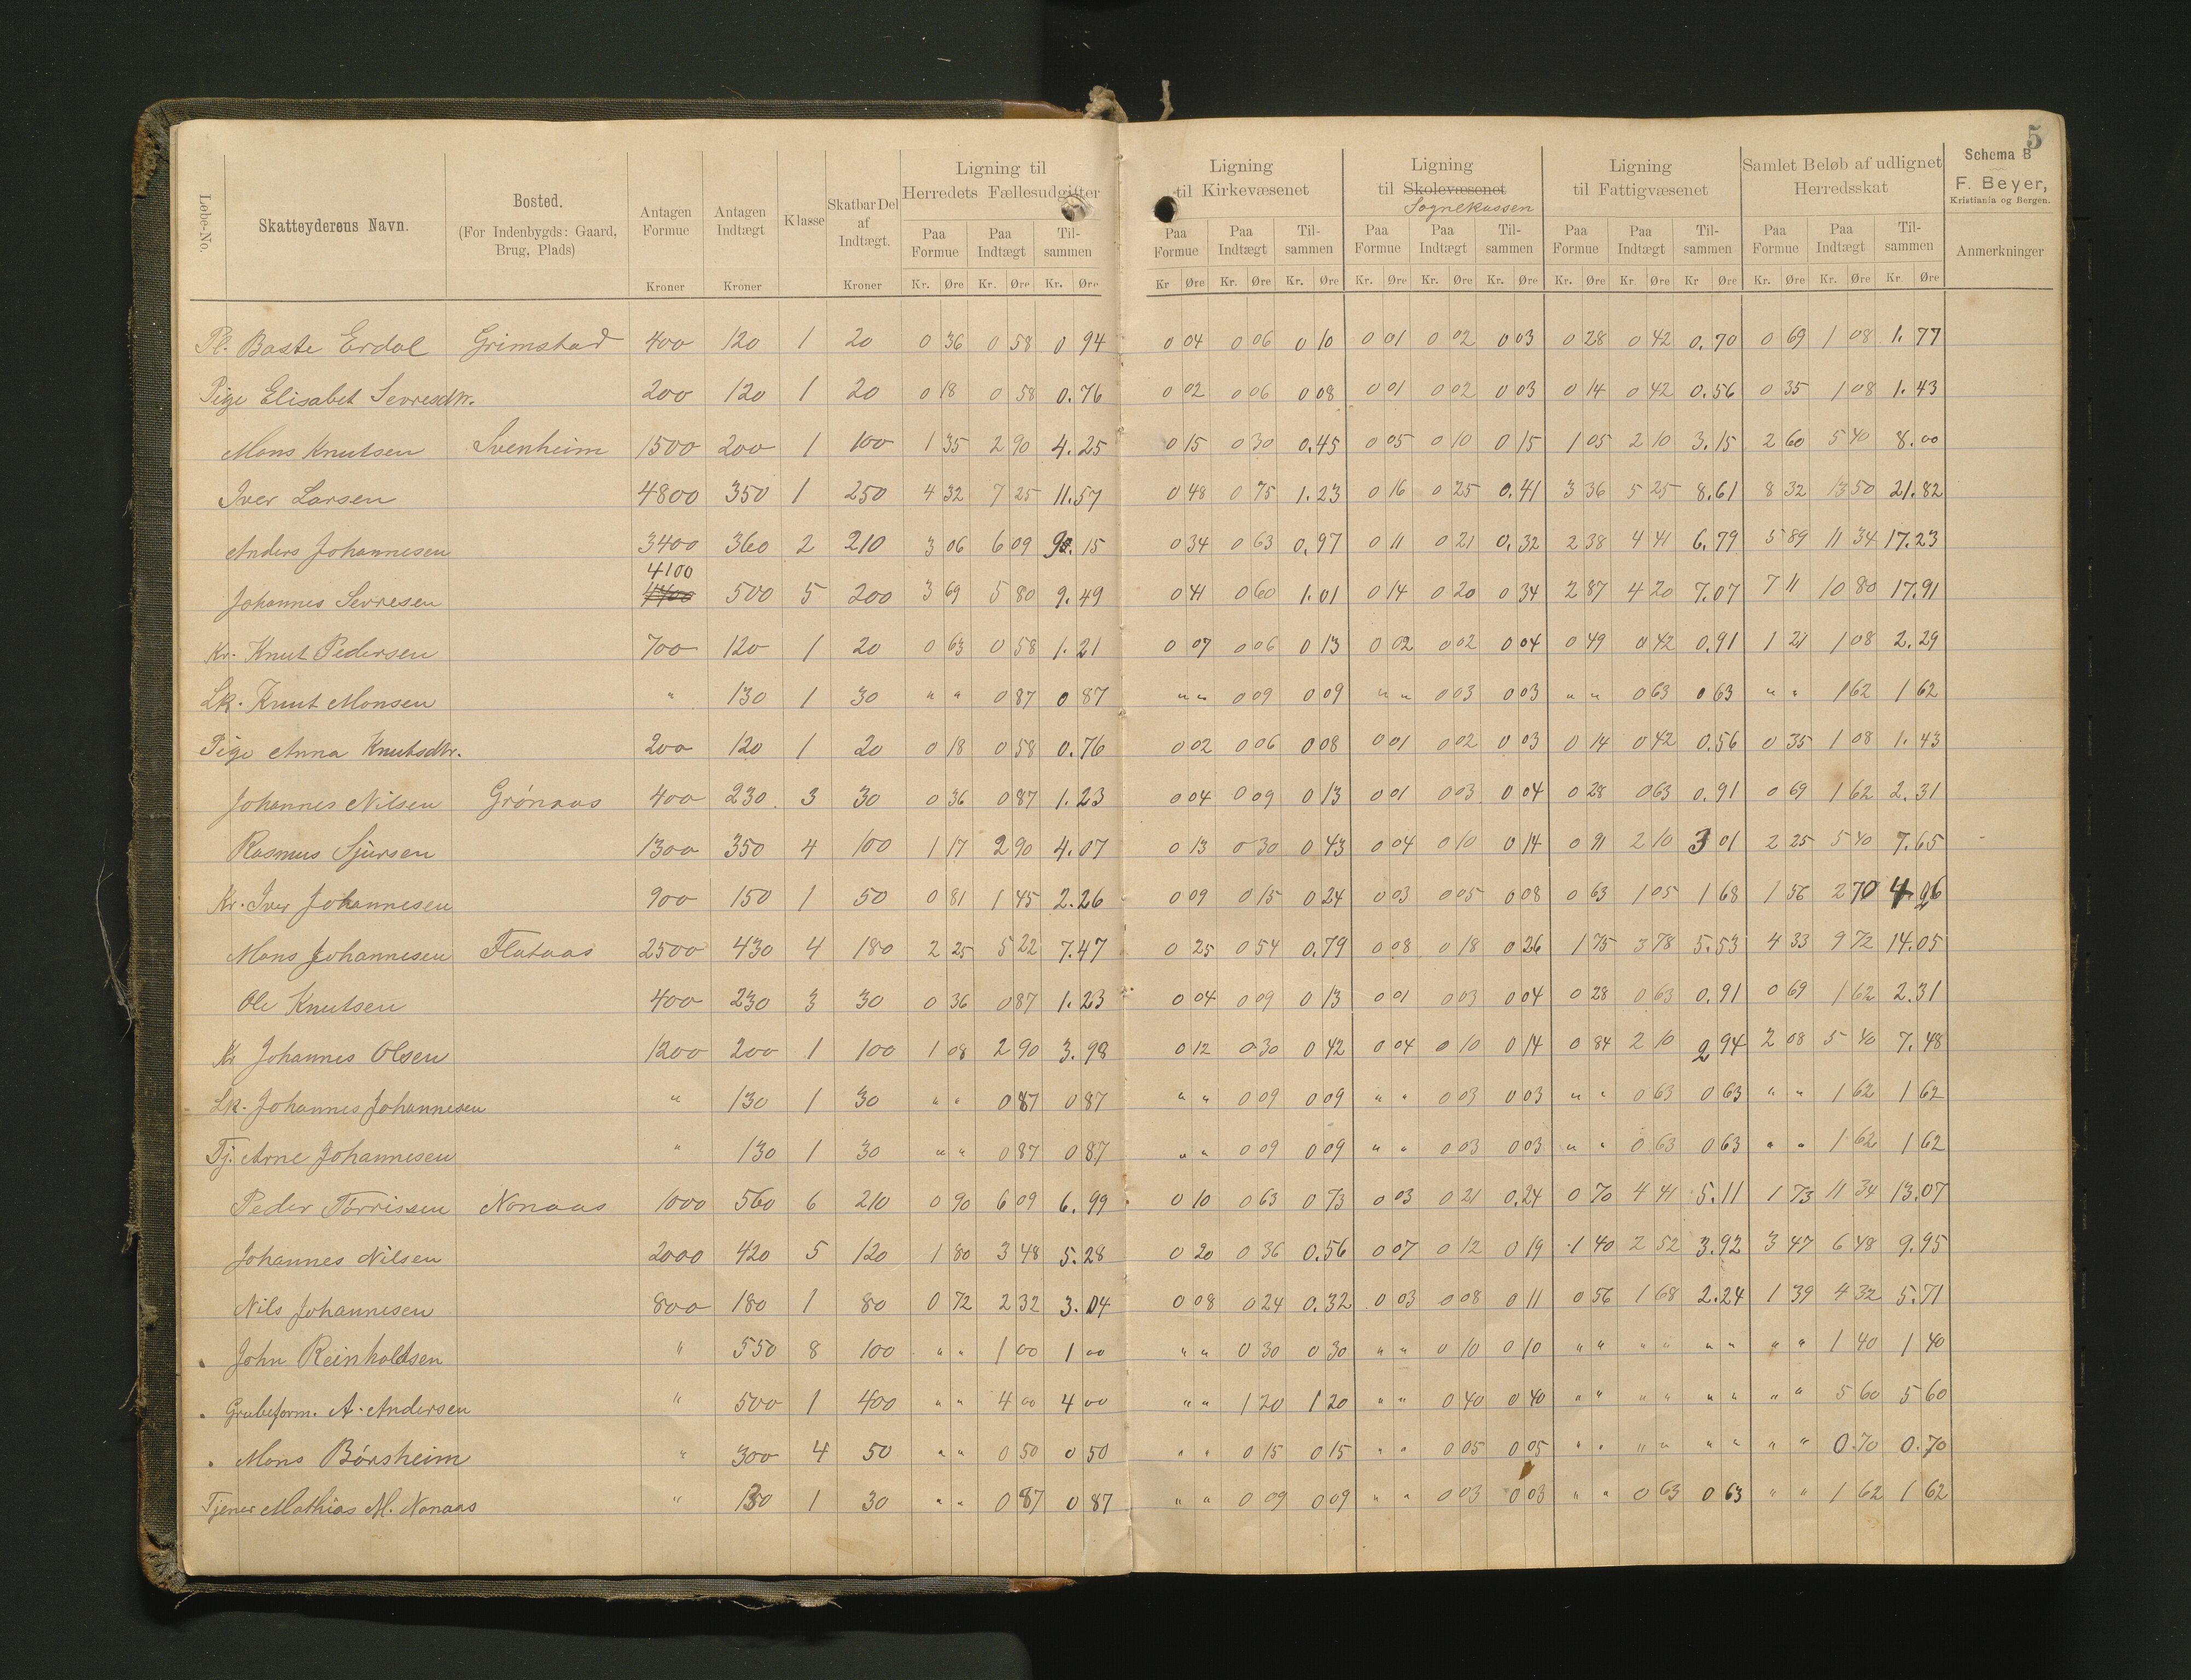 5
Løbe-No.
Skatteyderens Navn.
Bosted.
(For Indenbygds: Gaard, Brug, Plads)
Antagen Formue
Antagen Indtægt
Klasse
Skatbar Del af Indtægt.
Ligning til Herredets Fællesudgifter
Ligning til Kirkevæsenet
Ligning til Skolevæsenet Sognekassen
Ligning til Fattigvæsenet
Samlet Beløb af udlignet Herredsskat
Schema B
F. Beyer,
Kristiania og Bergen.
Anmerkninger
Paa Formue Paa Indtægt Til-sammen Paa Formue Paa Indtægt Til-sammen Paa Formue Paa Indtægt Til-sammen Paa Formue Paa Indtægt Til-sammen Paa Formue Paa Indtægt Til-sammen
Kroner Kroner Kroner Kr. Øre Kr. Øre Kr. Øre Kr Øre Kr. Øre Kr. Øre Kr. Øre Kr. Øre Kr. Øre Kr. Øre Kr. Øre Kr Øre Kr. Øre Kr. Øre Kr. Øre
Pl. Baste Erdal Grimstad 400 120 1 20 0 36 0 58 0 94 0 04 0 06 0 10 0 01 0 02 0 03 0 28 0 42 0.70 0 69 1 08 1.77
Pige Elisabet Sevresdtr. 200 120 1 20 0 18 0 58 0.76 0 02 0 06 0 08 0 01 0 02 0 03 0 14 0 42 0.56 0 35 1 08 1.43
Mons Knutsen Svenheim 1500 200 1 100 1 35 2 90 4.25 0 15 0 30 0.45 0 05 0 10 0 15 1 05 2 10 3.15 2 60 5 40 8.00
Iver Larsen 4800 350 1 250 4 32 7 25 11.57 0 48 0 75 1.23 0 16 0 25 0.41 3 36 5 25 8.61 8 32 13 50 21.82
Anders Johannesen 3400 360 2 210 3 06 6 09 9.15 0 34 0 63 0.97 0 11 0 21 0.32 2 38 4 41 6.79 5 89 11 34 17.23
4100
Johannes Sevresen 4400 500 5 200 3 69 5 80 9.49 0 41 0 60 1.01 0 14 0 20 0 34 2 87 4 20 7.07 7 11 10 80 17.91
Kr. Knut Pedersen 700 120 1 20 0 63 0 58 1.21 0 07 0 06 0 13 0 02 0 02 0 04 0 49 0 42 0.91 1 21 1 08 2.29
Lk. Knut Monsen " 130 1 30 " " 0 87 0 87 " " 0 09 0 09 " " 0 03 0 03 " " 0 63 0 63 " " 1 62 1 62
Pige Anna Knutsdtr. 200 120 1 20 0 18 0 58 0.76 0 02 0 06 0 08 0 01 0 02 0 03 0 14 0 42 0.56 0 35 1 08 1.43
Johannes Nilsen Grónaas 400 230 3 30 0 36 0 87 1.23 0 04 0 09 0 13 0 01 0 03 0 04 0 28 0 63 0.91 0 69 1 62 2.31
Rasmus Sjursen 1300 350 4 100 1 17 2 90 4.07 0 13 0 30 0 43 0 04 0 10 0 14 0 91 2 10 3 01 2 25 5 40 7.65
Kr. Iver Johannesen 900 150 1 50 0 81 1 45 2.26 0 09 0 15 0 24 0 03 0 05 0 08 0 63 1 05 1 68 1 56 2 70 4.26
Mons Johannesen Flataas 2500 430 4 180 2 25 5 22 7.47 0 25 0 54 0.79 0 08 0 18 0 26 1 75 3 78 5.53 4 33 9 72 14.05
Ole Knutsen 400 230 3 30 0 36 0 87 1.23 0 04 0 09 0 13 0 01 0 03 0 04 0 28 0 63 0.91 0 69 1 62 2.31
Kr Johannes Olsen 1200 200 1 100 1 08 2 90 3.98 0 12 0 30 0 42 0 04 0 10 0 14 0 84 2 10 2 94 2 08 5 40 7.48
Lk. Johannes Johannesen " 130 1 30 " " 0 87 0 87 " " 0 09 0 09 " " 0 03 0 03 " " 0 63 0 63 " " 1 62 1 62
Tj. Arne Johannesen " 130 1 30 " " 0 87 0 87 " " 0 09 0 09 " " 0 03 0 03 " " 0 63 0 63 " " 1 62 1 62
Peder Tórrissen Nonaas 1000 560 6 210 0 90 6 09 6.99 0 10 0 63 0 73 0 03 0 21 0.24 0 70 4 41 5.11 1 73 11 34 13.07
Johannes Nilsen 2000 420 5 120 1 80 3 48 5.28 0 20 0 36 0.56 0 07 0 12 0 19 1 40 2 52 3.92 3 47 6 48 9.95
Nils Johannesen 800 180 1 80 0 72 2 32 3.04 0 08 0 24 0.32 0 03 0 08 0 11 0 56 1 68 2.24 1 39 4 32 5.71
. John Reinholdsen " 550 8 100 " " 1 00 1 00 " " 0 30 0 30 " " 0 10 0 10 " " " " " " " " 1 40 1 40
. Grubeform. A. Andersen " 500 1 400 " " 4 00 4 00 " " 1 20 1 20 " " 0 40 0 40 " " " " " " " " 5 60 5 60
. Mons Bórsheim " 300 4 50 " " 0 50 0 50 " " 0 15 0 15 " " 0 05 0 05 " " " " " " " " 0.70 0.70
Tjener Mathias M. Nonaas " 130 1 30 " " 0 87 0 87 " " 0 09 0 09 " " 0 03 0 03 " " 0 63 0 63 " " 1 62 1 62